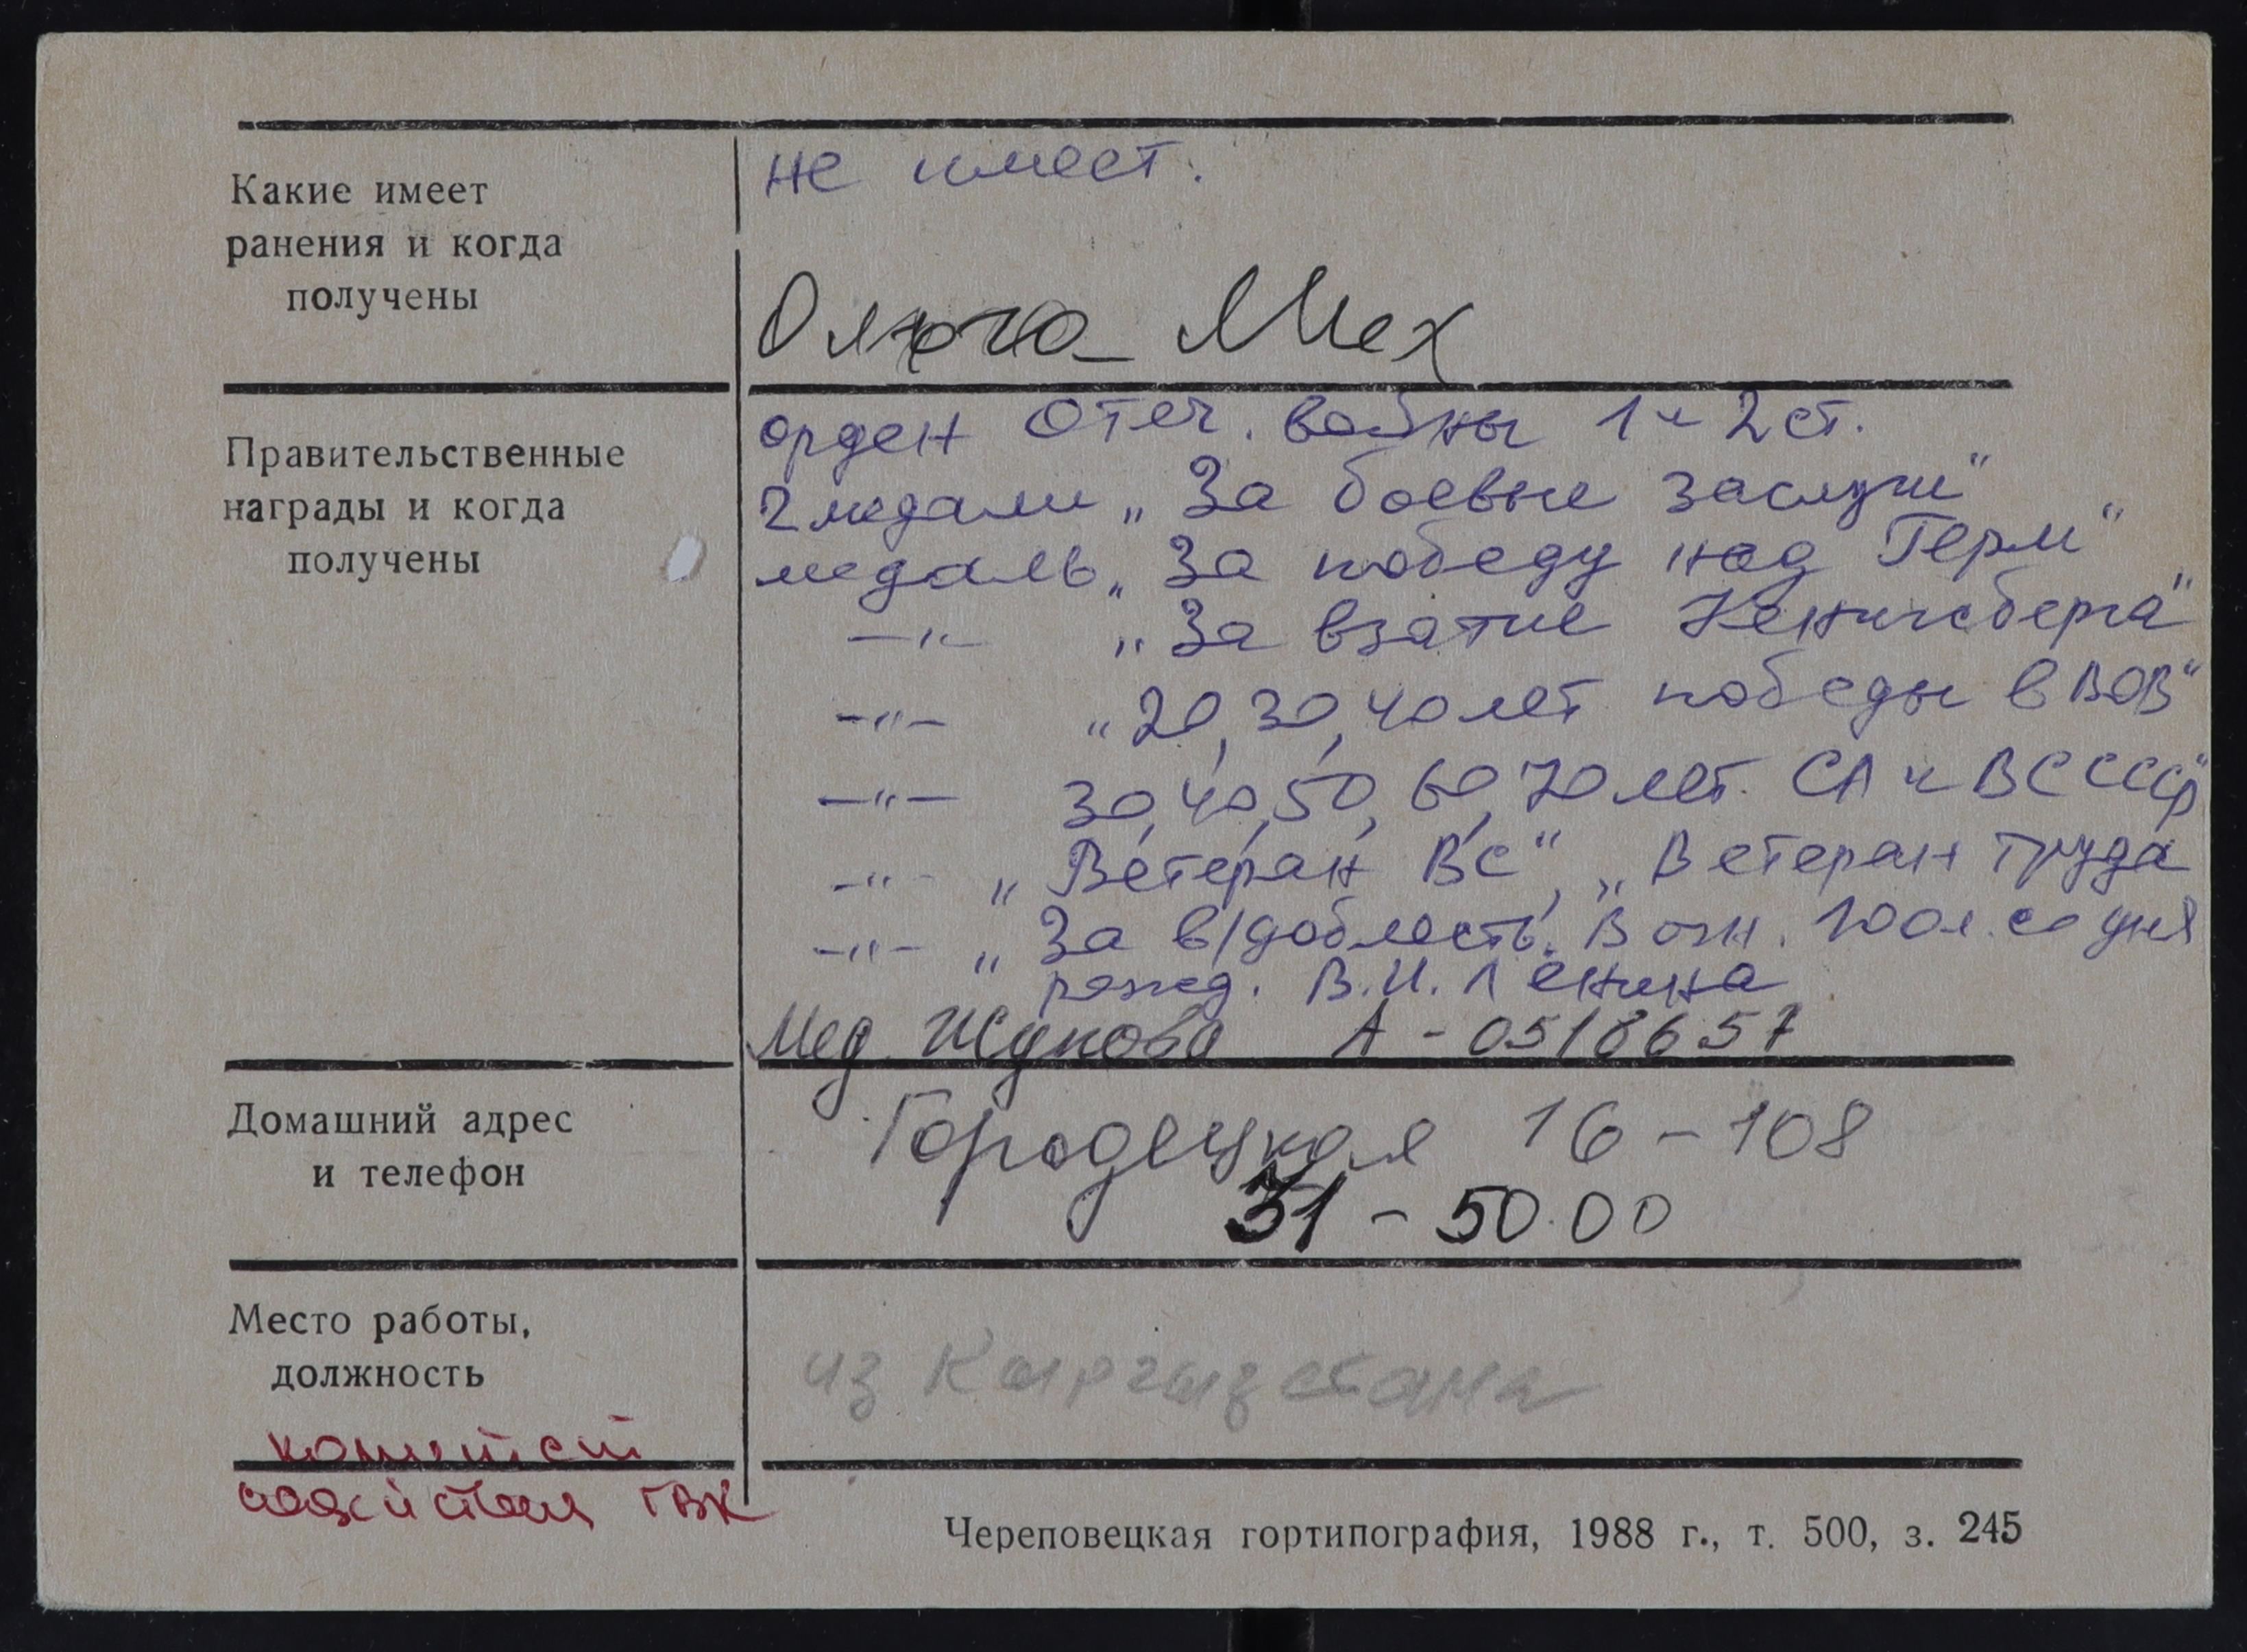 Какие имеет
ранения и когда
получены
не имеет.
Мех
Правительственные
награды и когда
получены
орден Отеч. войны 1 и 2 ст.
2 медали „За боевые заслуги“
медаль „За победу над Герм“
—"— „За взятие Кенигсберга“
—"— „20, 30, 40 лет победы в ВОВ“
—"— 30, 40, 50, 60, 70 лет СА и ВС СССР“
—"— „Ветеран ВС“, „Ветеран труда
—"— „За в/доблесть. В озн. 100 л. со дня
рожд. В.И. Ленина
Мед. Жукова А - 0518657
Домашний адрес
и телефон
Городецкая 16 - 108
31 - 50.00
Место работы,
должность
из Кыргызстана
комитет
содействия ГВК
Череповецкая гортипография, 1988 г., т. 500, з. 245